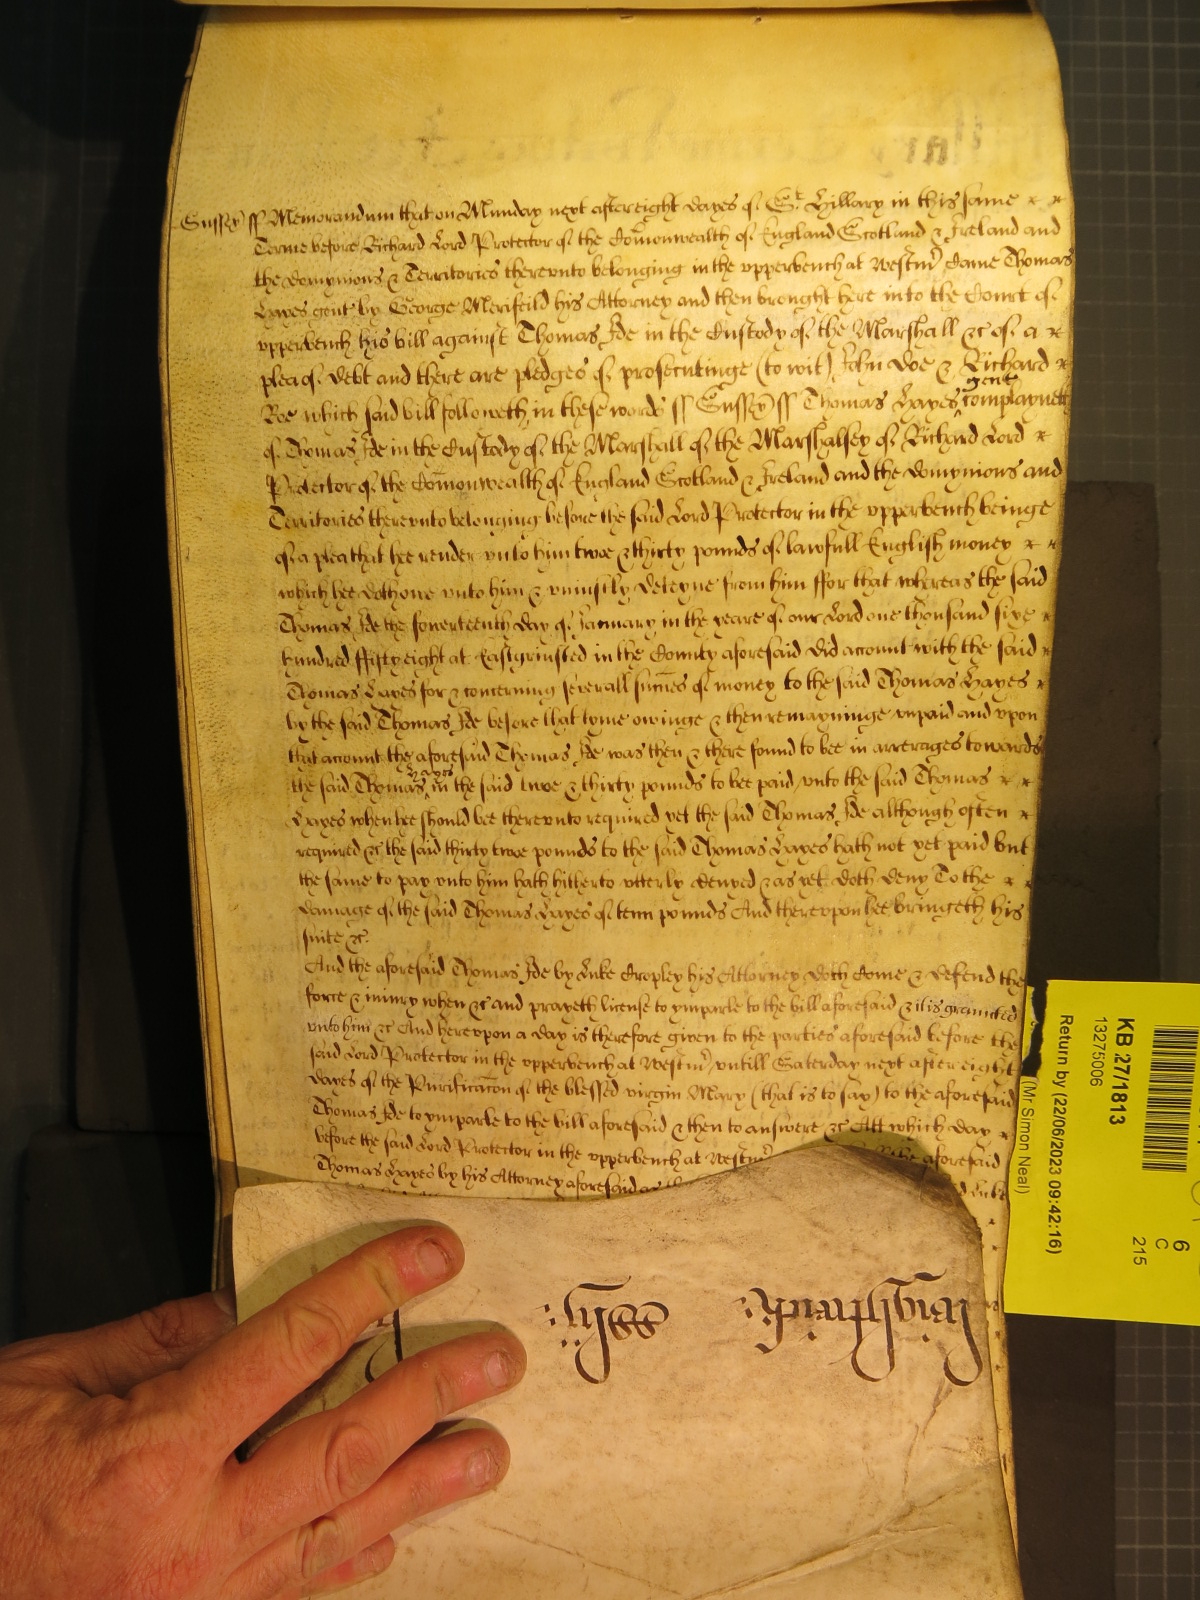 Sussex ss Memorandum that on Munday next after eight dayes of St. Hillary in this same
Terme before Richard Lord Protector of the Com̄onwealth of England Scotland & Ireland and
the dominyons & Territories thereunto belonging in the upperbench at Westmr Came Thomas
Hayes gent by George Merifeild his Attorney and then brought here into the Court of
upperbench his bill against Thomas Ide in the Custody of the Marshall &c of a
plea of debt and there are pledges of prosecutinge (to wit) John Doe & Richard
Roe which said bill followeth in these words ss Sussex ss Thomas Hayes gent complayneth
of Thomas Ide in the Custody of the Marshall of the Marshalsey of Richard Lord
Protector of the Com̄onwealth of England Scotland & Ireland and the dominyons and
Territories thereunto belonging before the said Lord Protector in the upperbench beinge
of a plea that hee render unto him twoe & thirty pounds of lawfull English money
which hee doth owe unto him & uniustly deteyne from him ffor that whereas the said
Thomas Ide the fowerteenth day of January in the yeare of our Lord one thousand sixe
hundred ffifty eight at Eastgrinsted in the County aforesaid did account with the said
Thomas Hayes for & concerning severall sum̄es of money to the said Thomas Hayes
by the said Thomas Ide before that tyme owinge & then remayninge unpaid and upon
that account the aforesaid Thomas Ide was then & there found to bee in arrerages towards
the said Thomas Hayes in the said twoe & thirty pounds to bee paid unto the said Thomas
Hayes when hee should bee thereunto required yet the said Thomas Ide although often
required &c the said thirty twoe pounds to the said Thomas Hayes hath not yet paid but
the same to pay unto him hath hitherto utterly denyed & as yet doth deny To the
damage of the said Thomas Hayes of tenn pounds And thereupon hee bringeth his
suite &c.
And the aforesaid Thomas Ide by Luke Cropley his Attorney doth Come & defend the
force & iniury when &c and prayeth license to ymparle to the bill aforesaid & it is graunted
unto him &c And hereupon a day is therefore given to the parties aforesaid before the
said Lord Protector in the upperbench at Westmr untill Saterday next after eight
dayes of the Purificac̄on of the blessed virgin Mary (that is to say) to the aforesaid
Thomas Ide to ymparle to the bill aforesaid & then to answere &c Att which day
before the said Lord Protector in the upperbench at Westmr aforesaid
Thomas Hayes by his Attorney aforesaid as Luke
KB 27/1813
13275006
Return by (22/06/2023 09:42:16)
(Mr Simon Neal)
6
C
215